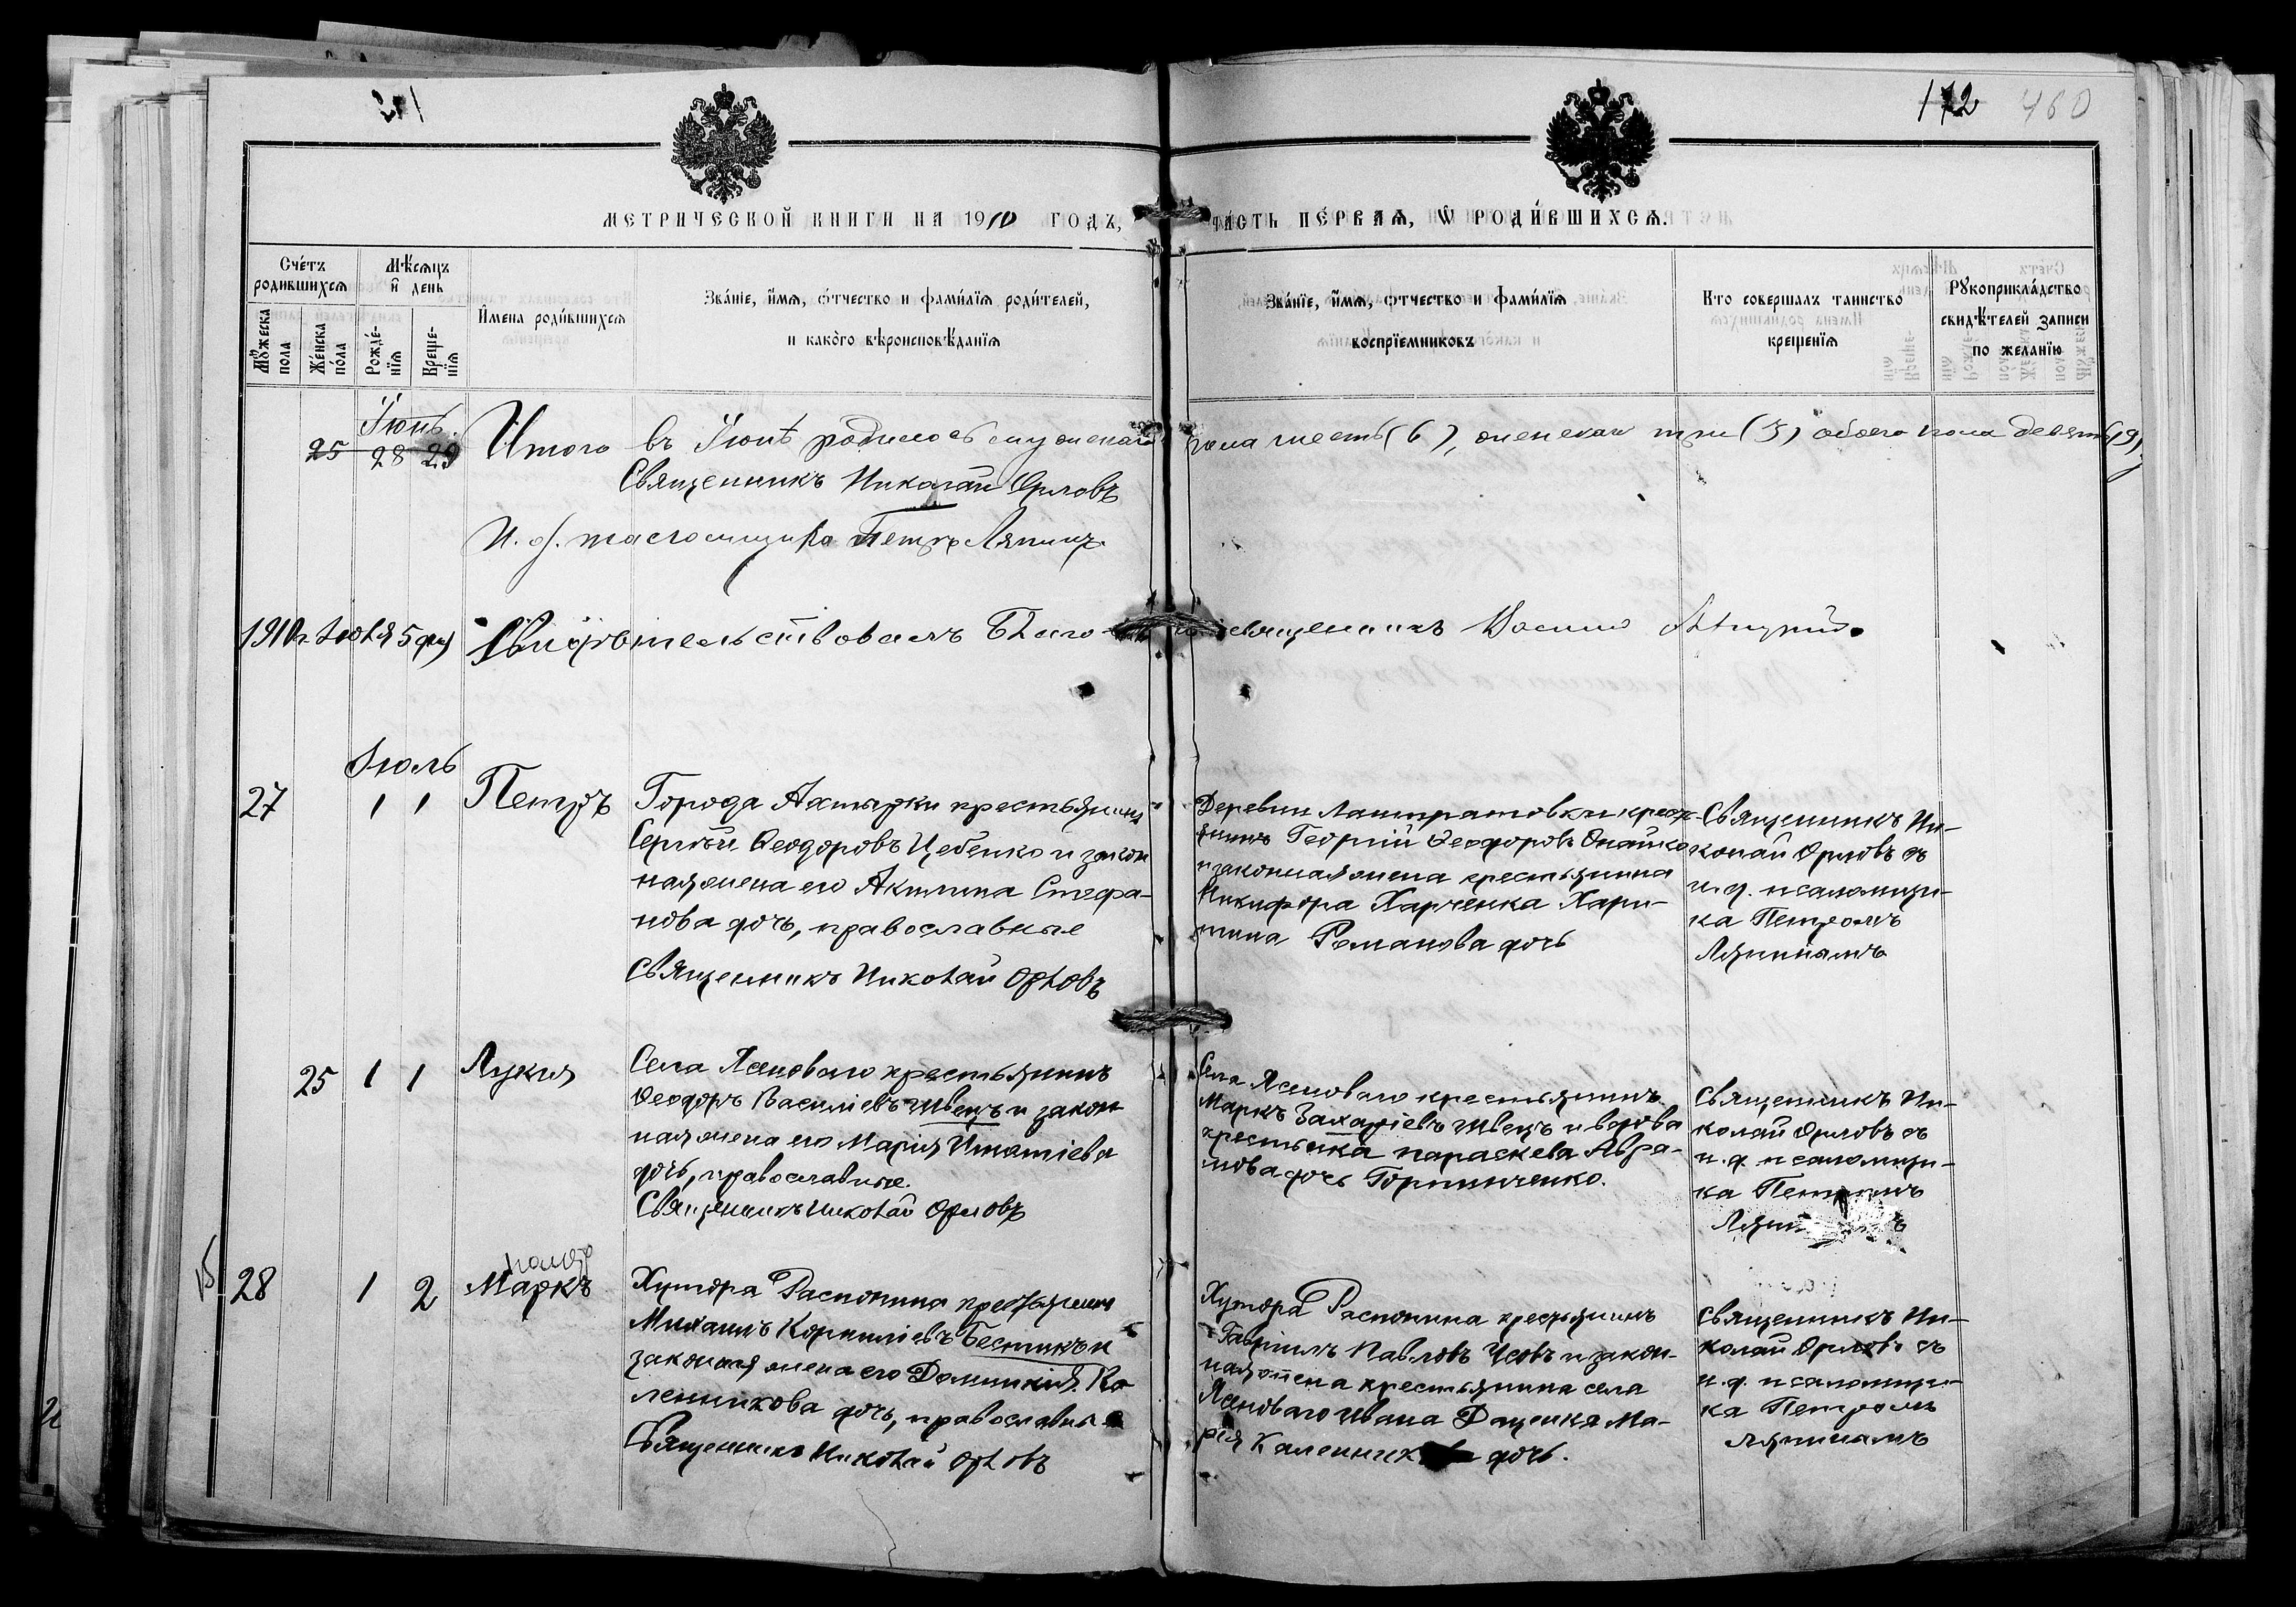 201
172 460
МЕТРИЧЕСКОЙ КНИГИ НА 1910 ГОДЪ,
ЧАСТЬ ПЕ́РВАѦ, Ѡ РОДИ́ВШИХСѦ.
Сче́тъ родившихсѧ
Мѣ́сѧцъ и день
Мꙋ́жеска пола
Же́нска по́ла
Рожде́-нїѧ
Креще-нїѧ
И҆мена роди́вшихсѧ
Зва́нїе, и҆́мѧ, ѻ҆́тчество и фами́лїѧ роди́телей,
и како́гѡ вѣроисповѣ́данїѧ
Зва́нїе, и҆́мѧ, ѻ҆тчество и фами́лїѧ
воспрїемниковъ
Кто совершалъ таинство
креще́нїѧ
Рꙋкоприкла́дство
свидѣ́телей записи
по желанїю
Іюнь.
25 28 29
Итого въ Іюнѣ родилось мужскаго пола шесть (6), женскаго три (3) обоего пола девять (9)
Священникъ Николай Орловъ
И. д. псаломщика Петръ Ляпинъ
1910 г. Іюля 5 дня Свидѣтельствовалъ Благочинный священникъ
Іюль
27 1 1 Петръ
Города Ахтырки крестьянинъ
Сергѣй Ѳеодоровъ Цебенко и закон
ная жена его Акилина Стефа-
нова дочь, православные
Священникъ Николай Орловъ
Деревни Лантратовки крест-
янинъ Георгій Ѳеодоровъ
и законная жена крестьянина
Никифора Харченка Хари-
тина Романова дочь
Священникъ Ни-
колай Орловъ съ
и. д. псаломщи-
ка Петромъ
Ляпинымъ
25 1 1 Лукия
Села Ясеноваго крестьянинъ
Ѳеодоръ Василіевъ Швецъ и закон
ная жена его Марія Игнатіева
дочь, православные.
Священникъ Николай Орловъ
Села Ясеноваго крестьянинъ
Маркъ Захаріевъ Швецъ и вдова
крестьянка Параскева Авра-
мова дочь Горпинченко.
Священникъ Ни-
колай Орловъ съ
и. д. псаломщи-
ка Петромъ
28 1 2 Маркъ
Хутора Распопина крестьянинъ
Михаилъ Корниліевъ Бесчикъ и
законная жена его Домникія Ка
ленникова дочь, православные
Священникъ Николай Орловъ
Хутора Распопина крестьянинъ
Гавріилъ Павловъ Усовъ и закон-
ная жена крестьянина села
Ясеноваго Ивана Даценка Ма-
рія Каленникова дочь.
Священникъ Ни-
колай Орловъ съ
и. д. псаломщи-
ка Петромъ
Ляпинымъ